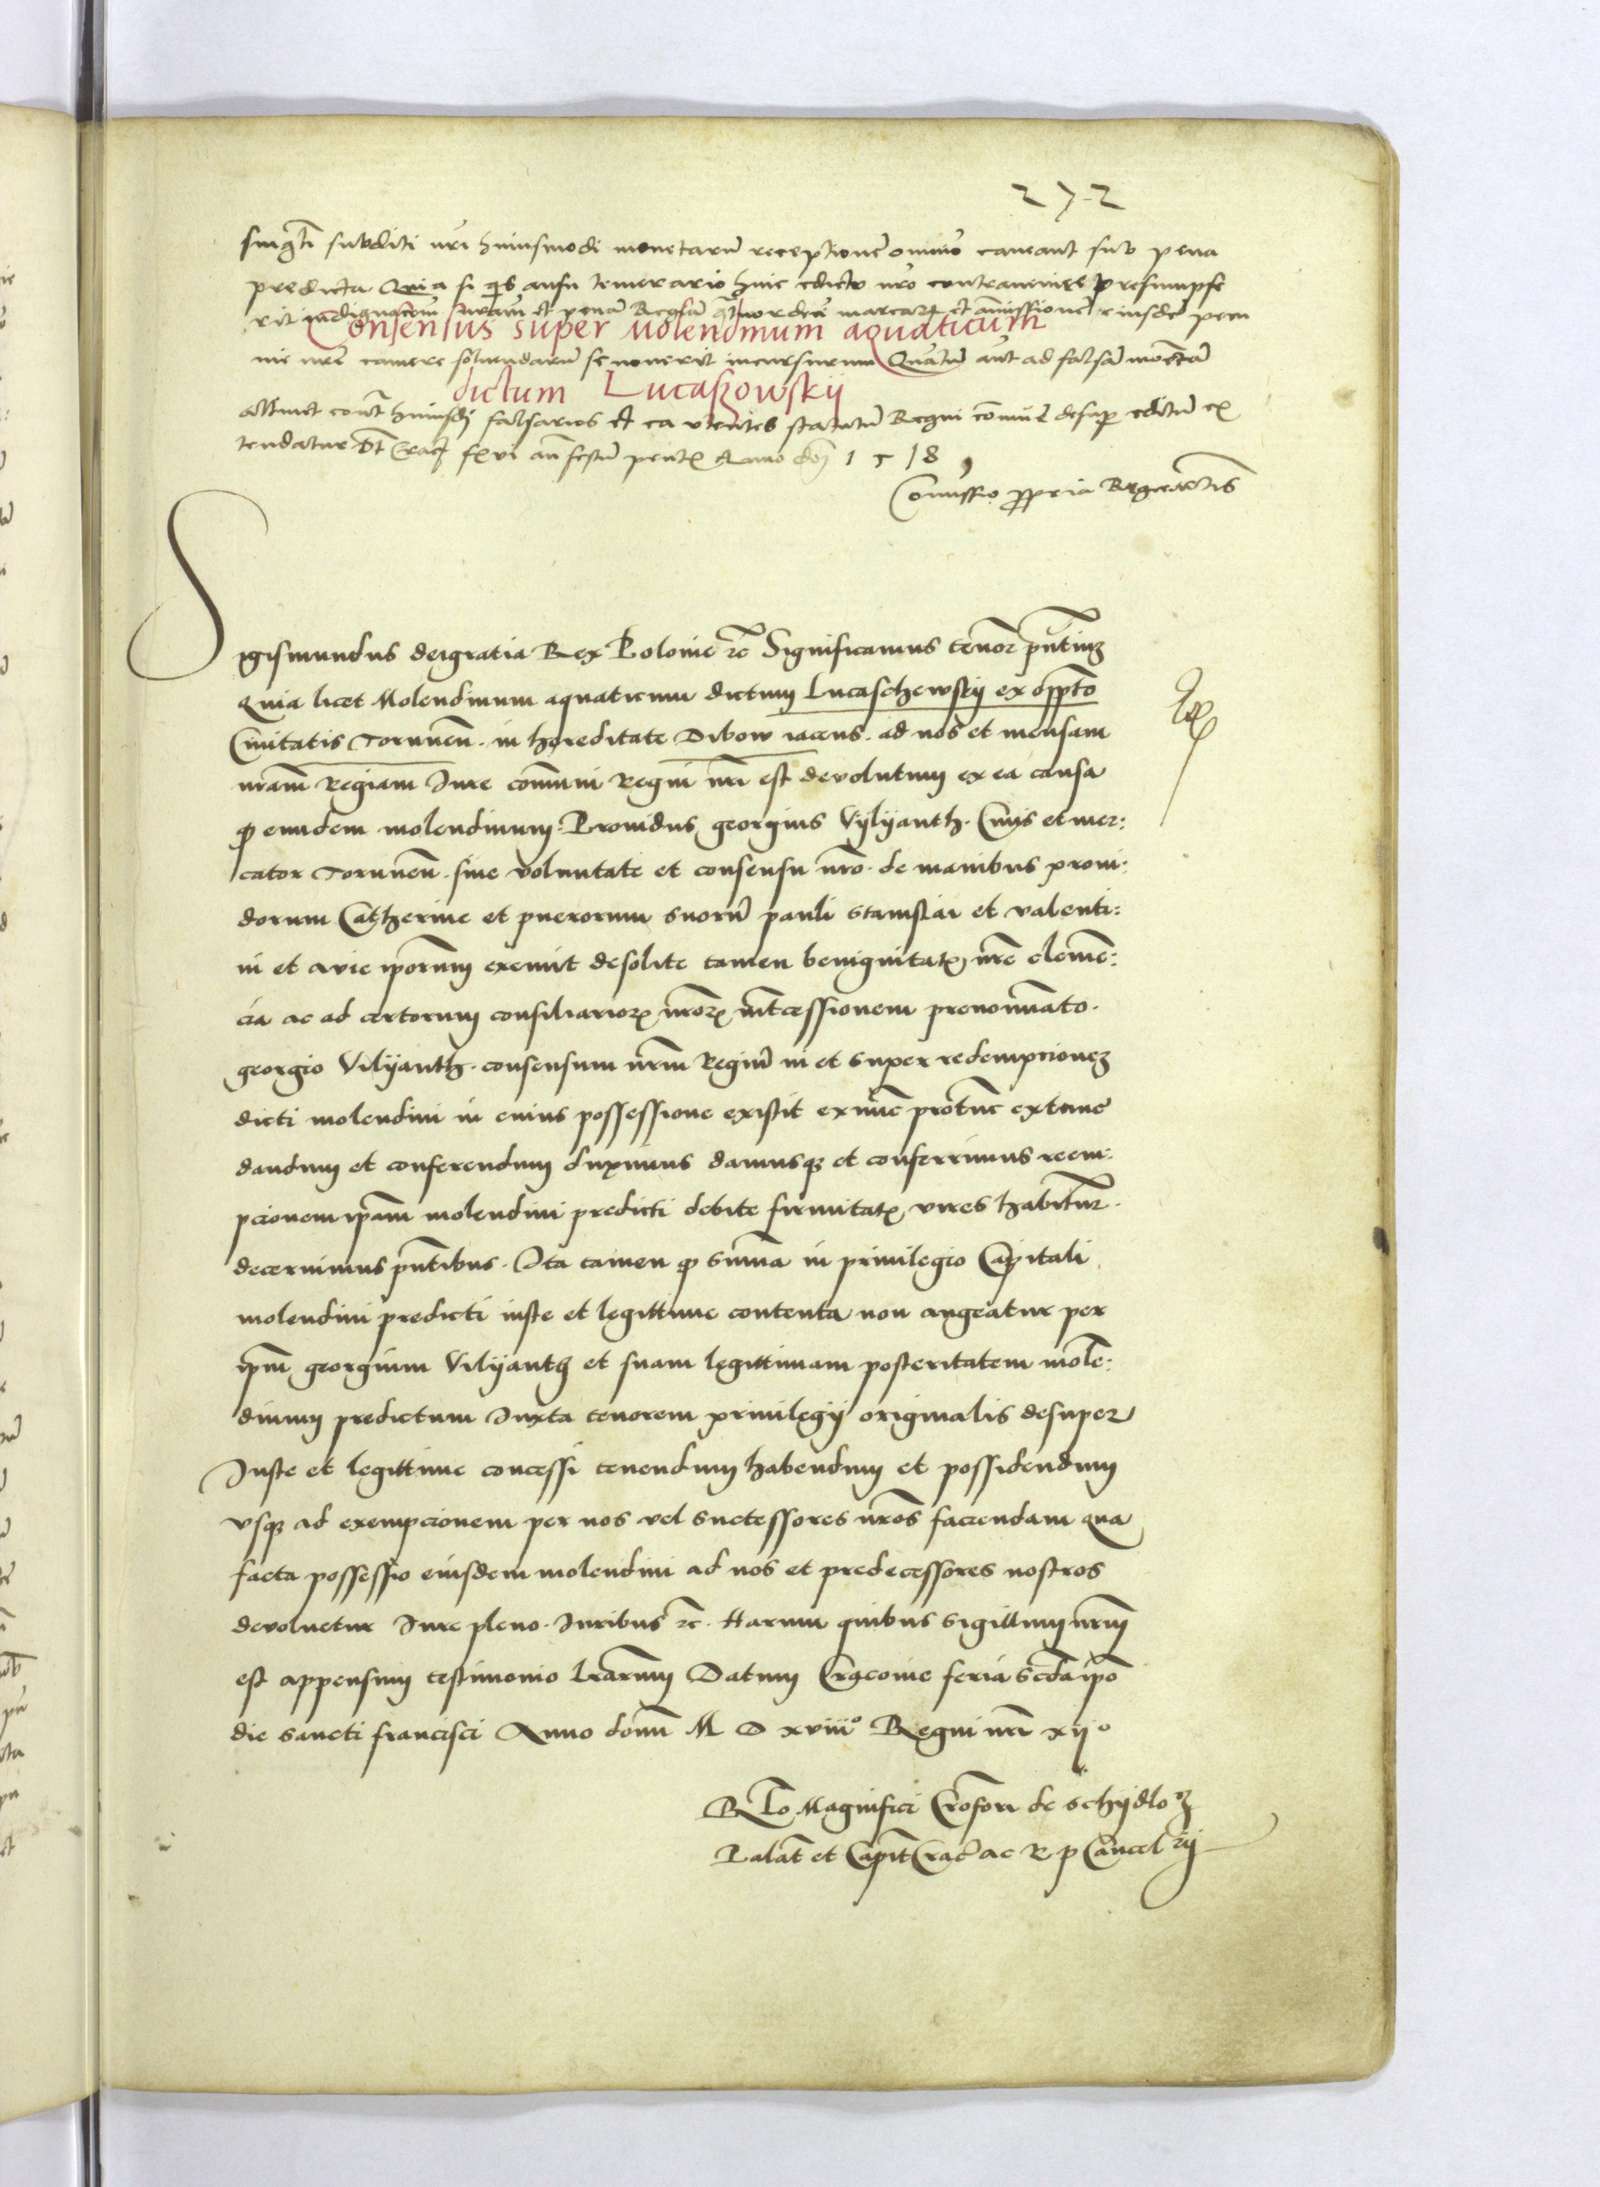 272
singuli subditi nri huiusmodi monetarum receptione omnino caveant sub pena
predicta Quia si qs ausu temerario huic edicto nro contravenire presumpse
rit indignacionem nram et penam Regiam quatuordecim marcarum et amissionem eiusdem pecu
Consensus super Molendinum aquaticum
nie nre camere solvendarum se noverit incursurum Quantum aut ad falsam monetam
dictum Lucaszowskii
attinet contra huiusmodi falsarios et ea utentes statutum Regni comune desuper editum ex
tendatur Dt Crac f vi an festum pent Anno dni 1518
Comissio propria Regie Mtis
Sigismundus dei gratia Rex Polonie etc Significamus tenore pntium
Quia licet Molendinum aquaticum dictum Lucaschewskij ex opposito
Civitatis Torunen. in hereditate Dibow iacens. ad nos et mensam
nram Regiam Jure communi Regni nri est devolutum ex ea causa
quod eundem molendinum. Providus georgius Vylyanth. Civis et mer:
cator Torunen. sine voluntate et consensu nro. de manibus provi:
dorum Catherine et puerorum suorum pauli Stanislai et valenti:
ni et avie iporum exemit de solite tamen benignitatis nre clemen:
cia ac ad certorum consiliariorum nrorum intercessionem prenominato.
georgio Vilyanth. consensum nrm Regium in et super redempcionem
dicti molendini in cuius possessione existit ex nunc prout ex tunc
dandum et conferendum duximus damusque et conferrimus reem:
pcionem ipam molendini predicti debite firmitatis vires habituram.
decernimus pntibus. Ita tamen quod summa in privilegio Capitali
molendini predicti iuste et legittime contenta non augeatur per
ipm georgium Vilyanth et suam legittimam posteritatem molen:
dinum predictum Juxta tenorem privilegij originalis desuper
Juste et legittime concessi tenendum habendum et possidendum
vsque ad exempcionem per nos vel successores nros faciendam qua
facta possessio eiusdem molendini ad nos et predecessores nostros
devoluetur Jure pleno. Juribus etc. Harum quibus Sigillum nrm
est appensum testimonio lrarum Datum Cracovie feria scda ipo
die sancti francisci Anno domini M D xviiio Regni nri xijo
Rlo Magnifici Crofori de Schydlo
Palat et Capit Crac ac R p Cancelrij